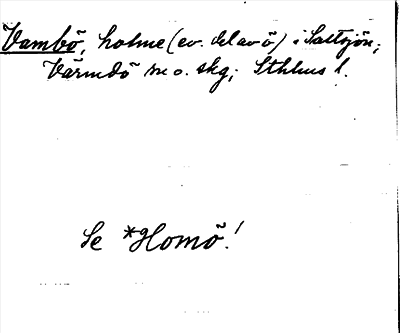 Vambö, holme (ev. del av ö) i Saltsjön;
Värmdö sn o. skg; Sthlms l.
Se *Homö!